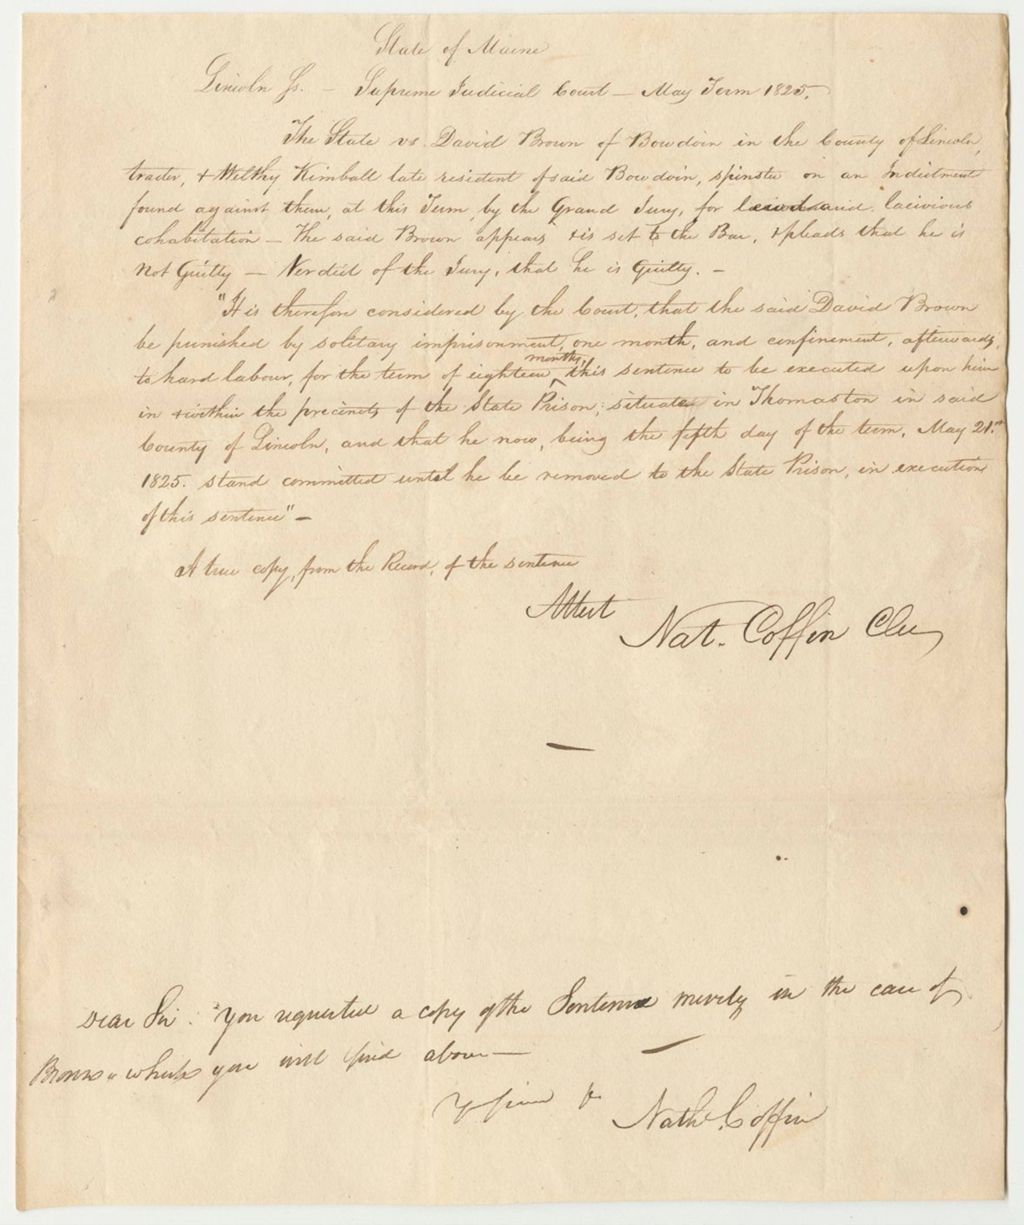 State of Maine
Lincoln Ss. – Supreme Judicial Court – May Term 1825.
The State vs. David Brown of Bowdoin in the County of Lincoln,
trader, & Welthy Kimball late resident of said Bowdoin, spinster on an Indictment
found against them, at this Term, by the Grand Jury, for lewd and lacivious
cohabitation – The said Brown appears & is set to the Bar, & pleads that he is
Not Guilty – Verdict of the Jury, that he is Guilty. –
"It is therefore considered by the Court, that the said David Brown
be punished by solitary imprisonment, one month, and confinement, afterwards,
to hard labour, for the term of eighteen months, this sentence to be executed upon him
in & within the precincts of the State Prison, situate in Thomaston in said
County of Lincoln, and that he now, being the fifth day of the term, May 21st
1825. stand committed until he be removed to the State Prison, in execution
of this sentence" –
A true copy, from the Record, of the sentence
Attest
Nat. Coffin Cler
Dear Sir. You requested a copy of the Sentence merely in the case of
Brown which you will find above –
Nathl. Coffin